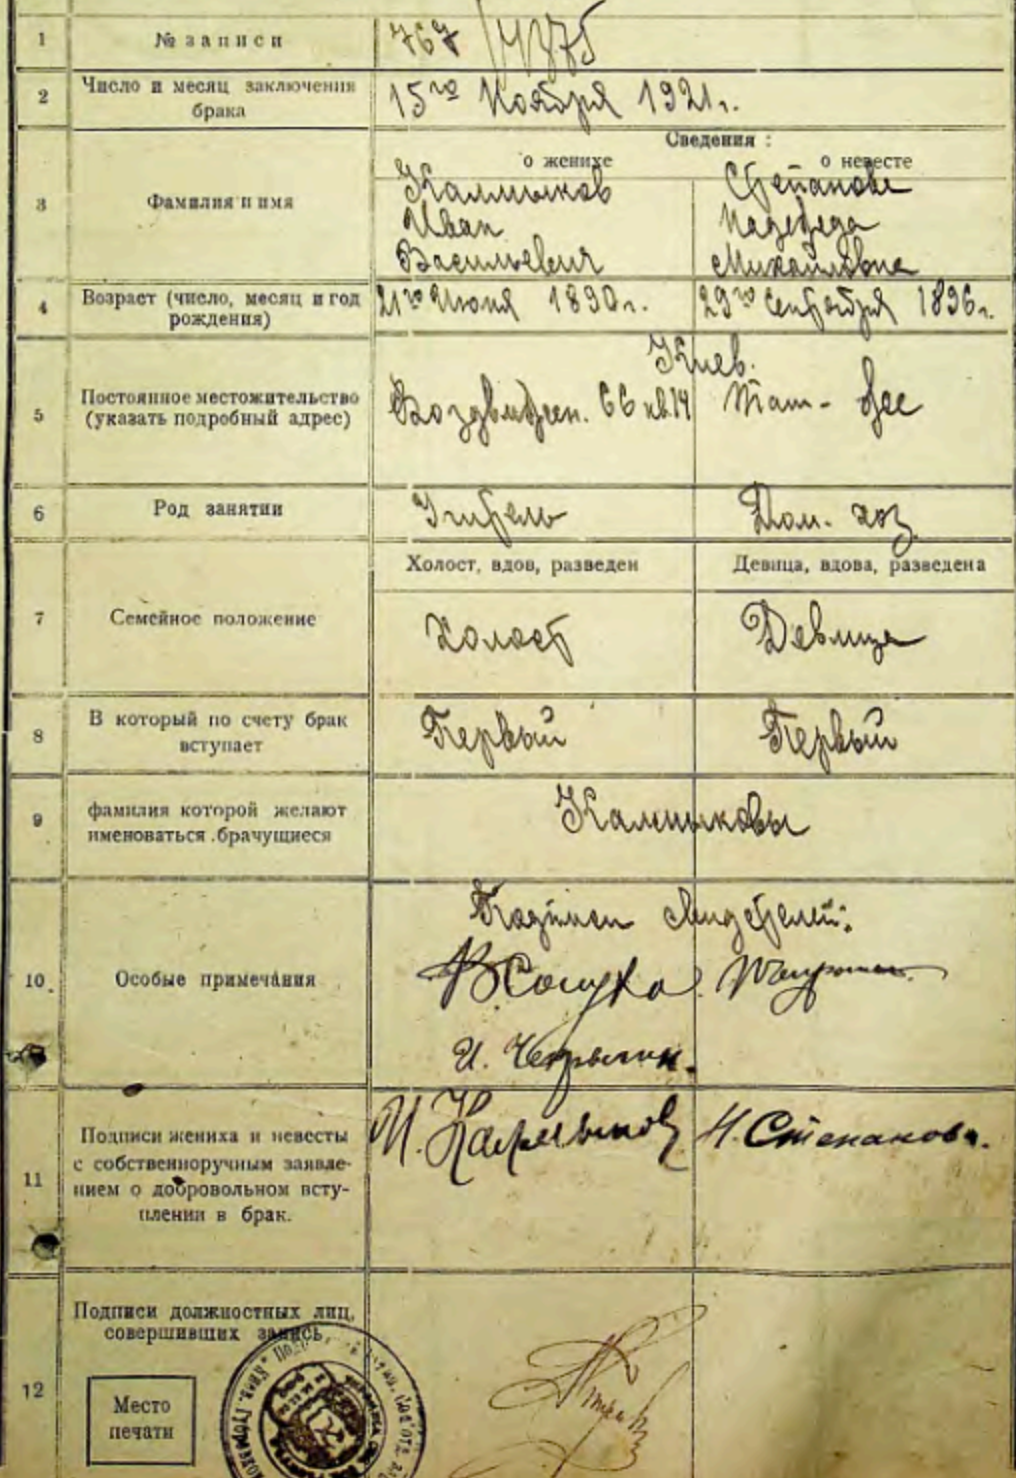 1 № записи 767/4375
2 Число и месяц заключения
брака
15го Ноября 1921г.
Сведения :
о женихе о невесте
3 Фамилия и имя
Калмыков
Иван
Васильевич
Степанова
Надежда
Михайловна
4 Возраст (число, месяц и год
рождения)
21го Июня 1890г. 29го Сентября 1896г.
5 Постоянное местожительство
(указать подробный адрес)
Киев.
Воздвижен. 66 кв 14 Там-же
6 Род занятии Учитель Дом. хоз
Холост, вдов, разведен Девица, вдова, разведена
7 Семейное положение Холост Девица
8 В который по счету брак
вступает
Первый Первый
9 фамилия которой желают
именоваться брачущиеся
Калмыковы
10. Особые примечания
Подписи свидетелей:
И.
11 Подписи жениха и невесты
с собственноручным заявле-
нием о добровольном всту-
плении в брак.
И. Калмыков Н. Степанова.
12 Подписи должностных лиц,
совершивших запись
Место
печати